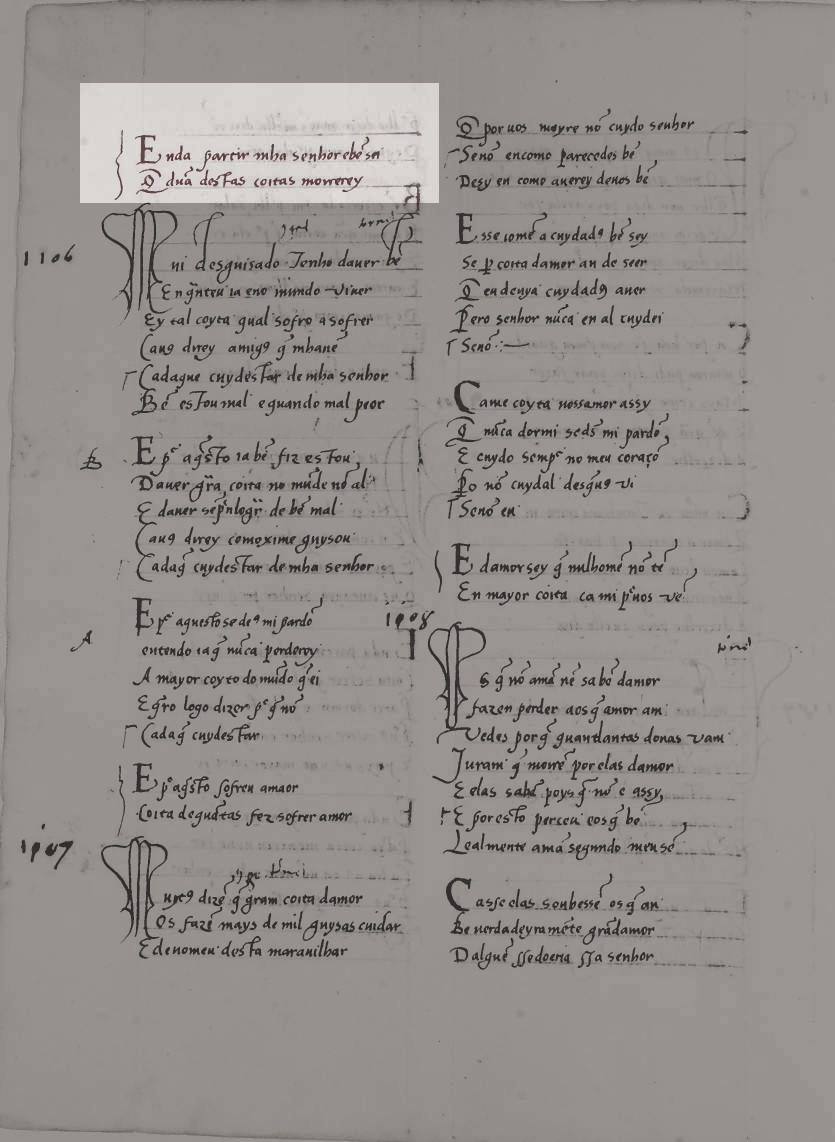 Enda partir mha senhor ebẽ sei
Q̃ dũa destas coitas morrerey
1106
Mui desguisado Tenho dauer bẽ
En q̃nteu ia eno mundo viuer
Ey tal coyta qual sofro a sofrer
Ca us direy amigꝯ q̃ mhanẽ
Cadaque cuydestar de mha senhor
Bẽ estou mal e quando mal peor
B
E pʳ aq̃sto ia bẽ fiz estou
Dauer grã coita no mũdo nõ al
E dauer sẽpʳ logr̃ de bẽ mal
Ca us direy comoxime guysou
Cadaq̃ cuydestar de mha senhor
A
E pʳ aquesto se deꝯ mi pardõ
entendo ia q̃ nũca perderey
A mayor coyta do mũdo q̃ ei
E q̃ro logo dizer pʳ q̃ nõ
Cadaq̃ cuydestar
E pʳ aq̃sto sofreu amaor
Coita de quãtas fez sofrer amor
1107
Muytꝯ dizẽ q̃ gram coita damor
Os fazẽ mays de mil guysas cuidar
E deuomeu desta marauilhar
Q̃ por uos moyre nõ cuydo senhor
Senõ encomo parecedes bẽ
Desy en como auerey deuos bẽ
Esse iomẽ a cuydadꝯ bẽ sey
Se p̱ coita damor an de seer
Q̃ eu deuya cuydadꝯ auer
Pero senhor nũca en al cuydei
Senõ
Ca me coyta uossamor assy
Q̃ nũca dormi se dꝯ mi pardõ
E cuydo sempʳ no meu coraçõ
P̱o nõ cuydal desq̃uꝯ vi
Senõ en
E damor sey q̃ nulhomẽ nõ tẽ
En mayor coita ca mi pʳuos vẽ
1108
Os q̃ nõ amã nẽ sabẽ damor
fazen perder aos q̃ amor am
Vedes porq̃ quantlantas donas vam
Juram q̃ morrẽ por elas damor
E elas sabẽ poys q̃ nõ e assy
E por esto perceu eos q̃ bẽ
Lealmente amã segundo meu sẽ
Ca sse elas soubessẽ os q̃ an
Be uerdadeyramẽte grãdamor
Dalguẽ sse doeria ssa senhor